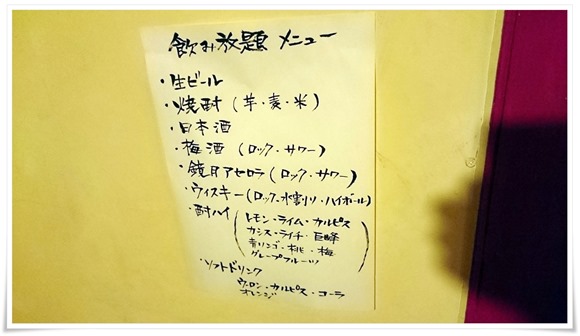 飲み放題 メニュー
・生ビール
・焼酎（芋・麦・米）
・日本酒
・梅酒（ロック・サワー）
・鏡月アセロラ（ロック・サワー）
・ウィスキー（ロック・水割り・ハイボール）
・酎ハイ（レモン・ライム・カルピス
カシス・ライチ・巨峰
青リンゴ・桃・梅
グレープフルーツ）
・ソフトドリンク
ウーロン・カルピス・コーラ
オレンジ